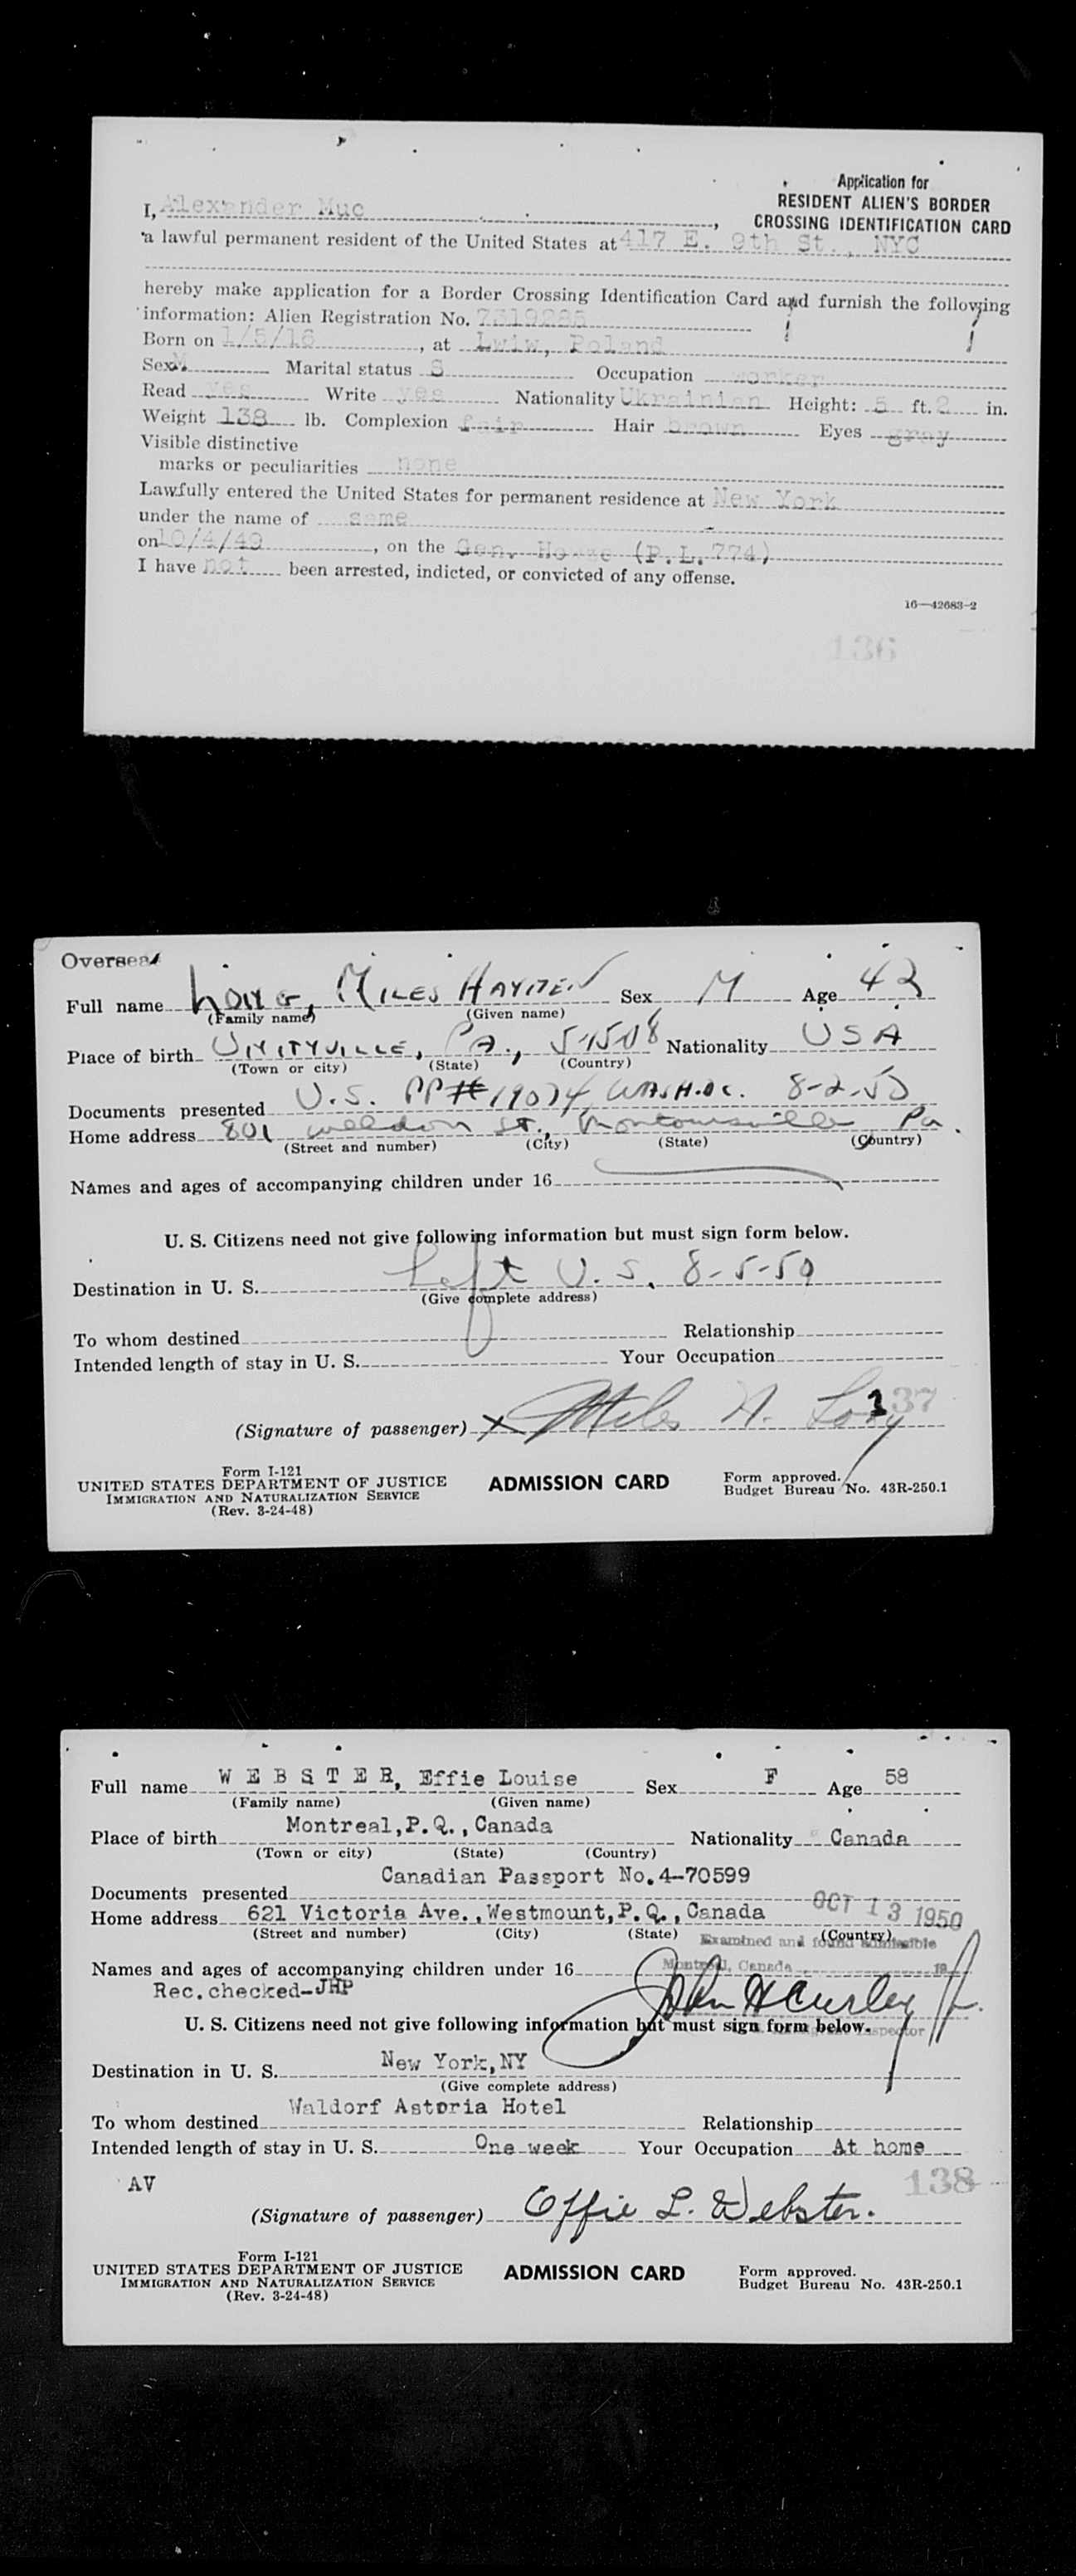 Application for
RESIDENT ALIEN'S BORDER
CROSSING IDENTIFICATION CARD
I, Alexander Muc,
a lawful permanent resident of the United States at 417 E. 9th St., NYC
hereby make application for a Border Crossing Identification Card and furnish the following
information: Alien Registration No. 7319285
Born on 1/5/16, at Lwiw, Poland
Sex M Marital status S Occupation worker
Read yes Write yes Nationality Ukrainian Height: 5 ft. 2 in.
Weight 138 lb. Complexion fair Hair brown Eyes gray
Visible distinctive
marks or peculiarities none
Lawfully entered the United States for permanent residence at New York
under the name of same
on 10/4/49, on the Gen. (P.L. 774)
I have not been arrested, indicted, or convicted of any offense.
16—42683-2
136
Overseas
Full name LONG, MILES HAYDEN Sex M Age 42
(Family name) (Given name)
Place of birth UNITYVILLE, PA., 5-15-08 Nationality USA
(Town or city) (State) (Country)
Documents presented U.S. PP# 19074 WASH.DC. 8-2-50
Home address 801 Weldon St., Montoursville Pa.
(Street and number) (City) (State) (Country)
Names and ages of accompanying children under 16
U. S. Citizens need not give following information but must sign form below.
Destination in U. S. Left U.S. 8-5-50
(Give complete address)
To whom destined Relationship
Intended length of stay in U. S. Your Occupation
137
(Signature of passenger) X Miles H. Long
Form I-121
UNITED STATES DEPARTMENT OF JUSTICE
IMMIGRATION AND NATURALIZATION SERVICE
(Rev. 3-24-48)
ADMISSION CARD
Form approved.
Budget Bureau No. 43R-250.1
Full name WEBSTER, Effie Louise Sex F Age 58
(Family name) (Given name)
Place of birth Montreal,P.Q.,Canada Nationality Canada
(Town or city) (State) (Country)
Documents presented Canadian Passport No.4-70599
Home address 621 Victoria Ave.,Westmount,P.Q.,Canada OCT 13 1950
(Street and number) (City) (State) (Country)
Examined and found admissible
Names and ages of accompanying children under 16 Montreal, Canada 19
Rec.checked-JHP John H Curley Jr.
U. S. Citizens need not give following information but must sign form below.
Inspector
Destination in U. S. New York,NY
(Give complete address)
To whom destined Waldorf Astoria Hotel Relationship
Intended length of stay in U. S. One week Your Occupation At home
AV 138
(Signature of passenger) Effie L. Webster.
Form I-121
UNITED STATES DEPARTMENT OF JUSTICE
IMMIGRATION AND NATURALIZATION SERVICE
(Rev. 3-24-48)
ADMISSION CARD
Form approved.
Budget Bureau No. 43R-250.1